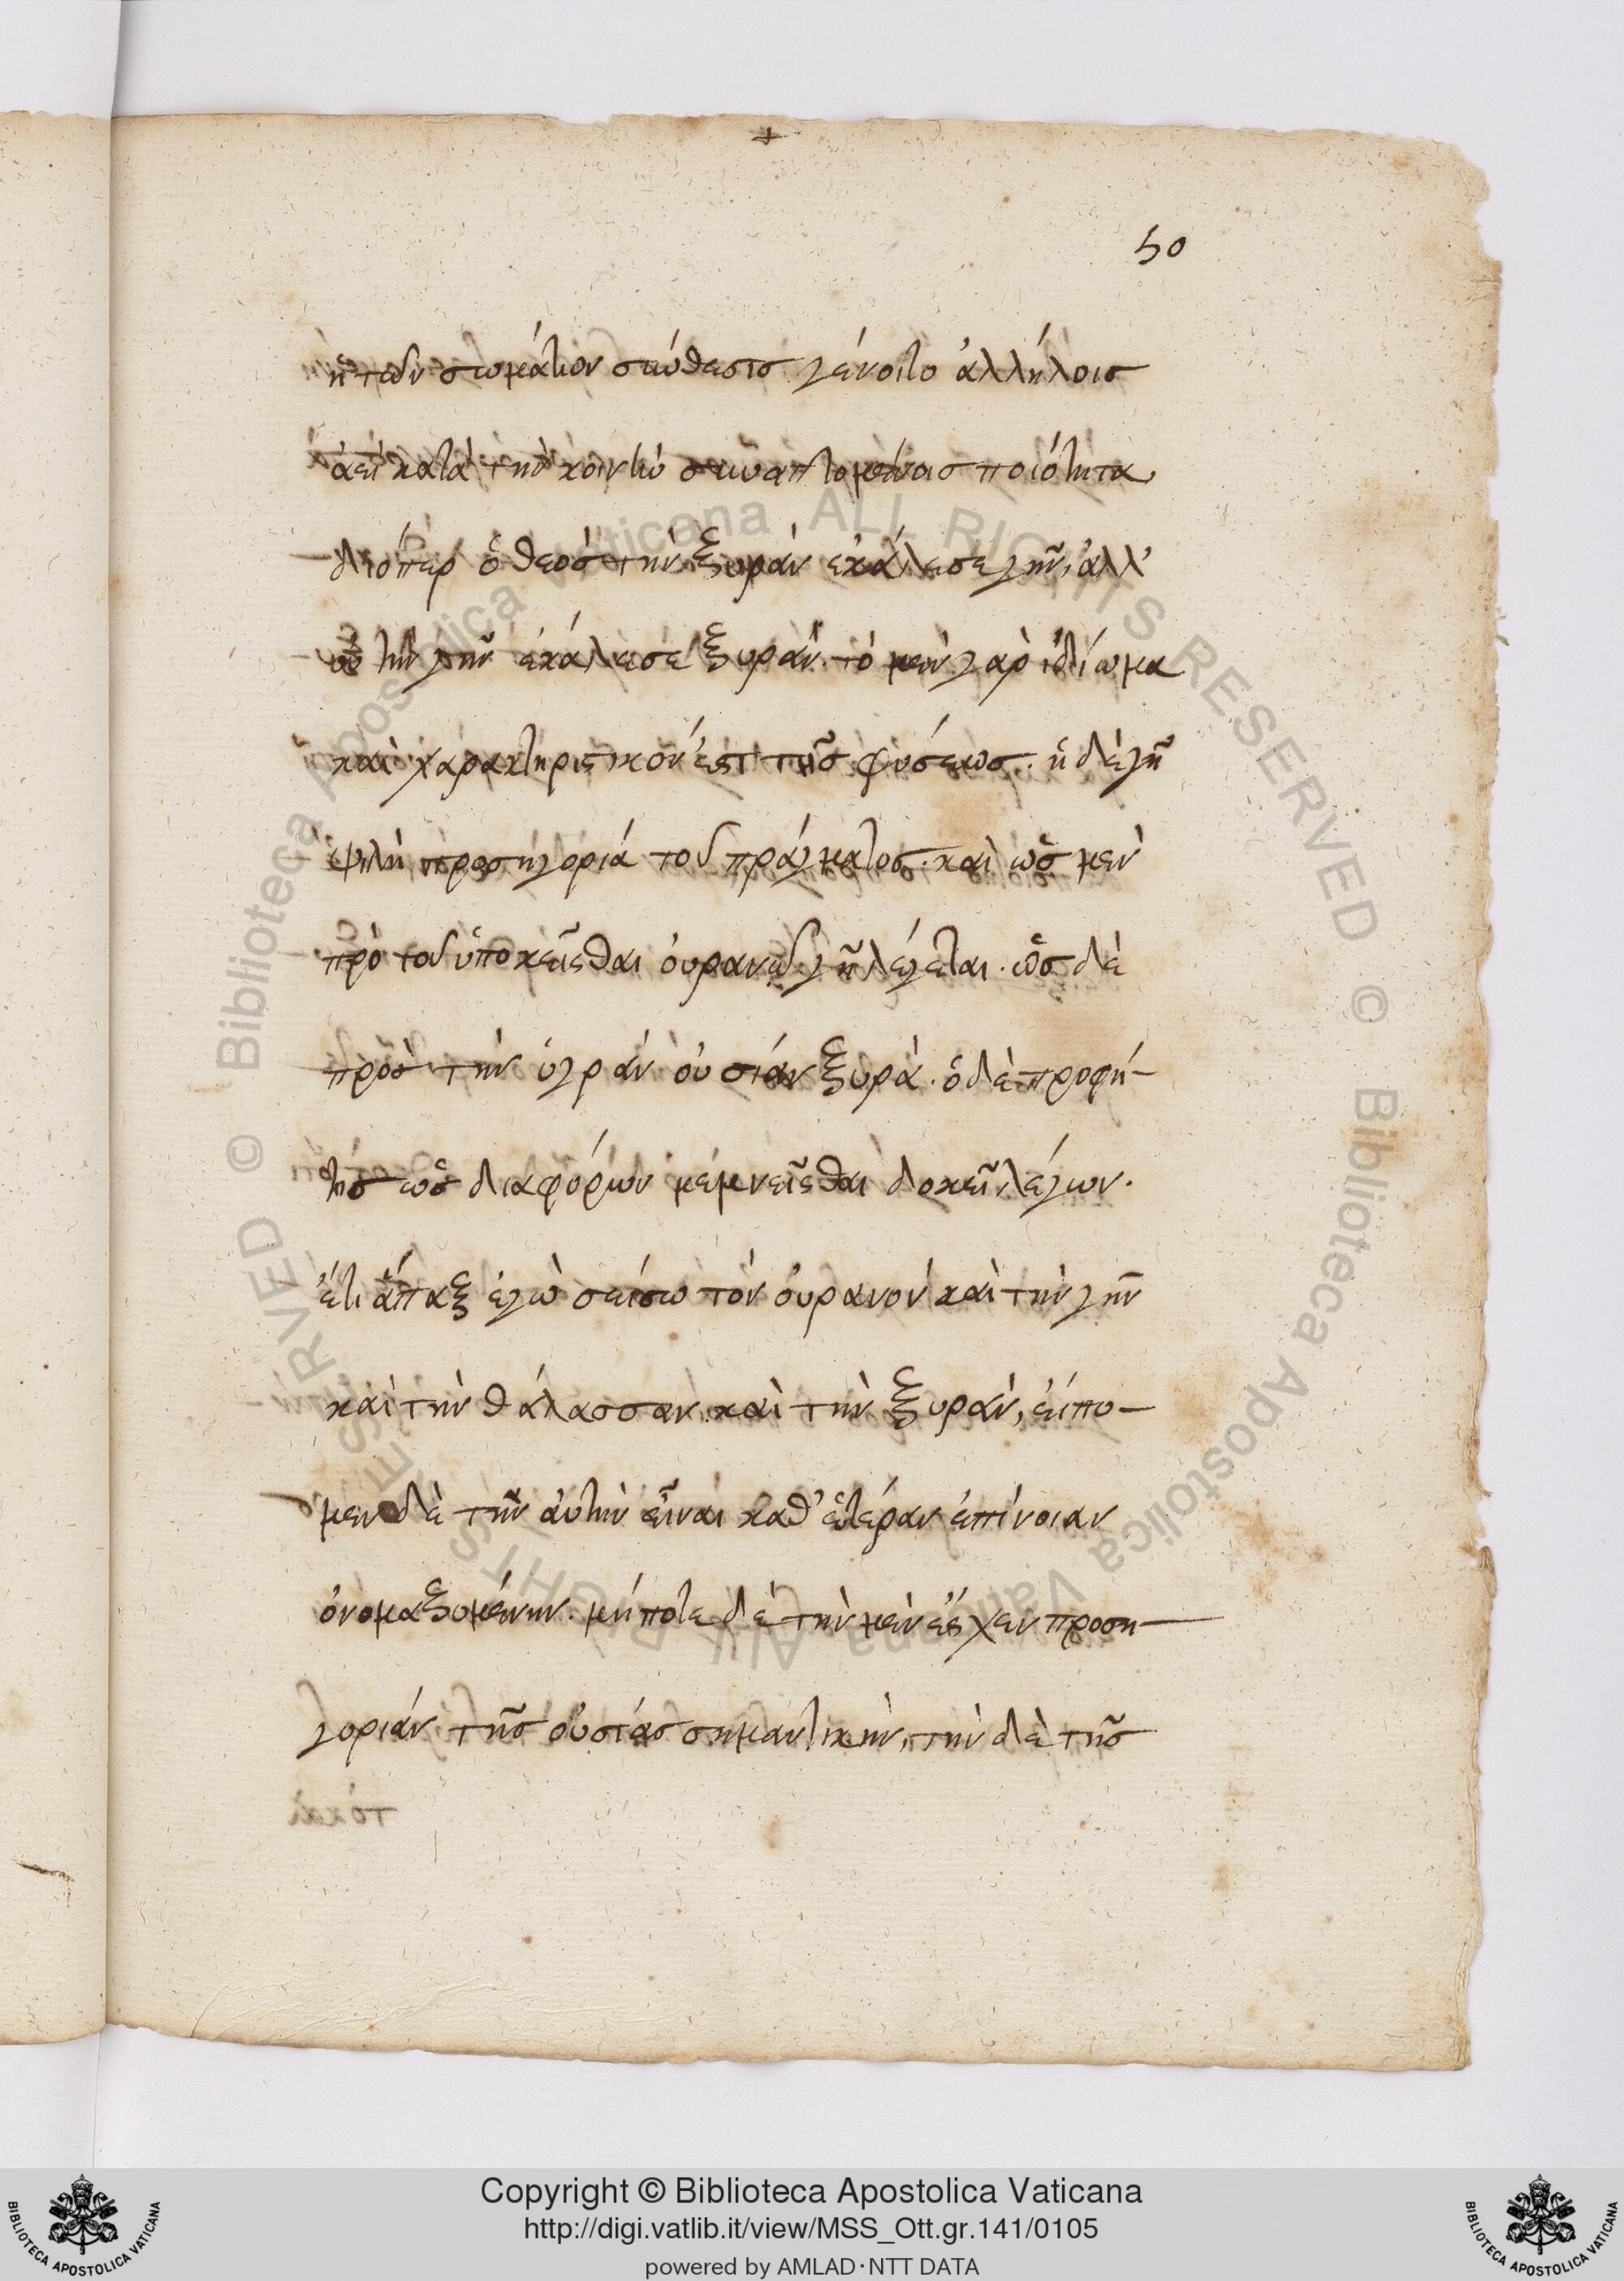 +
50
ἡ τῶν σωμάτων σύνθεσισ γένοιτο ἀλλήλοισ
ἀεὶ κατὰ τὴν κοινὴν συναπτομένοισ ποιότητα
διόπερ ὁ θεόσ τὴν ξηρὰν ἐκάλεσε γῆν, ἀλλ’
οὐ τὴν γῆν ἐκάλεσε ξηράν. τὸ μεν γαρ ἰδίωμα
καὶ χαρακτηριστικόν ἐστι τῆσ φύσεωσ. ἡ δὲ γῆ
ψιλὴ προσηγορία τοῦ πράγματοσ. καὶ ὡσ μεν
πρὸ τοῦ ὑποκεῖσθαι ουρανῷ γῆ λέγεται. ὡσ δὲ
πρὸσ τὴν ὑγρὰν οὐσίαν ξηρά. ὁ δὲ προφή-
τησ ὡσ διαφόρων μεμνεῖσθαι δοκεῖ λέγων.
ἔτι ἅπαξ ἐγὼ σείσω τὸν ουρανὸν καὶ τὴν γῆν
καὶ τὴν θάλασσαν καὶ τὴν ξηράν, εἴπο-
μεν δὲ τὴν ἀυτὴν εἶναι καθ’ ἑτέραν ἐπίνοιαν
ὀνομαζομένην. μήποτε δὲ τὴν μὲν ἔσχεν προση-
γορίαν τῆσ οὐσίασ σημαντικὴν, τὴν δὲ τῆσ
Copyright © Biblioteca Apostolica Vaticana
http://digi.vatlib.it/view/MSS_Ott.gr.141/0105
powered by AMLAD·NTT DATA
BIBLIOTECA APOSTOLICA VATICANA
BIBLIOTECA APOSTOLICA VATICANA
Biblioteca Apostolica Vaticana ALL RIGHTS RESERVED ©
Biblioteca Apostolica Vaticana ALL RIGHTS RESERVED ©